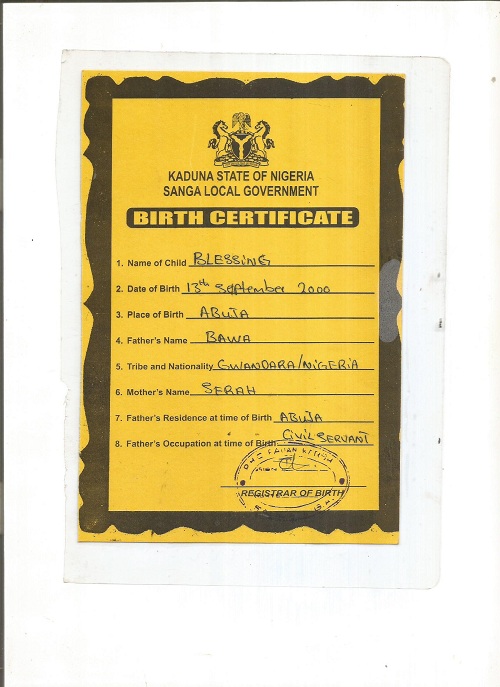 KADUNA STATE OF NIGERIA
SANGA LOCAL GOVERNMENT
BIRTH CERTIFICATE
1. Name of Child BLESSING
2. Date of Birth 13th September 2000
3. Place of Birth ABUJA
4. Father's Name BAWA
5. Tribe and Nationality GWANDARA/NIGERIA
6. Mother's Name SERAH
7. Father's Residence at time of Birth ABUJA
8. Father's Occupation at time of Birth CIVIL SERVANT
REGISTRAR OF BIRTH